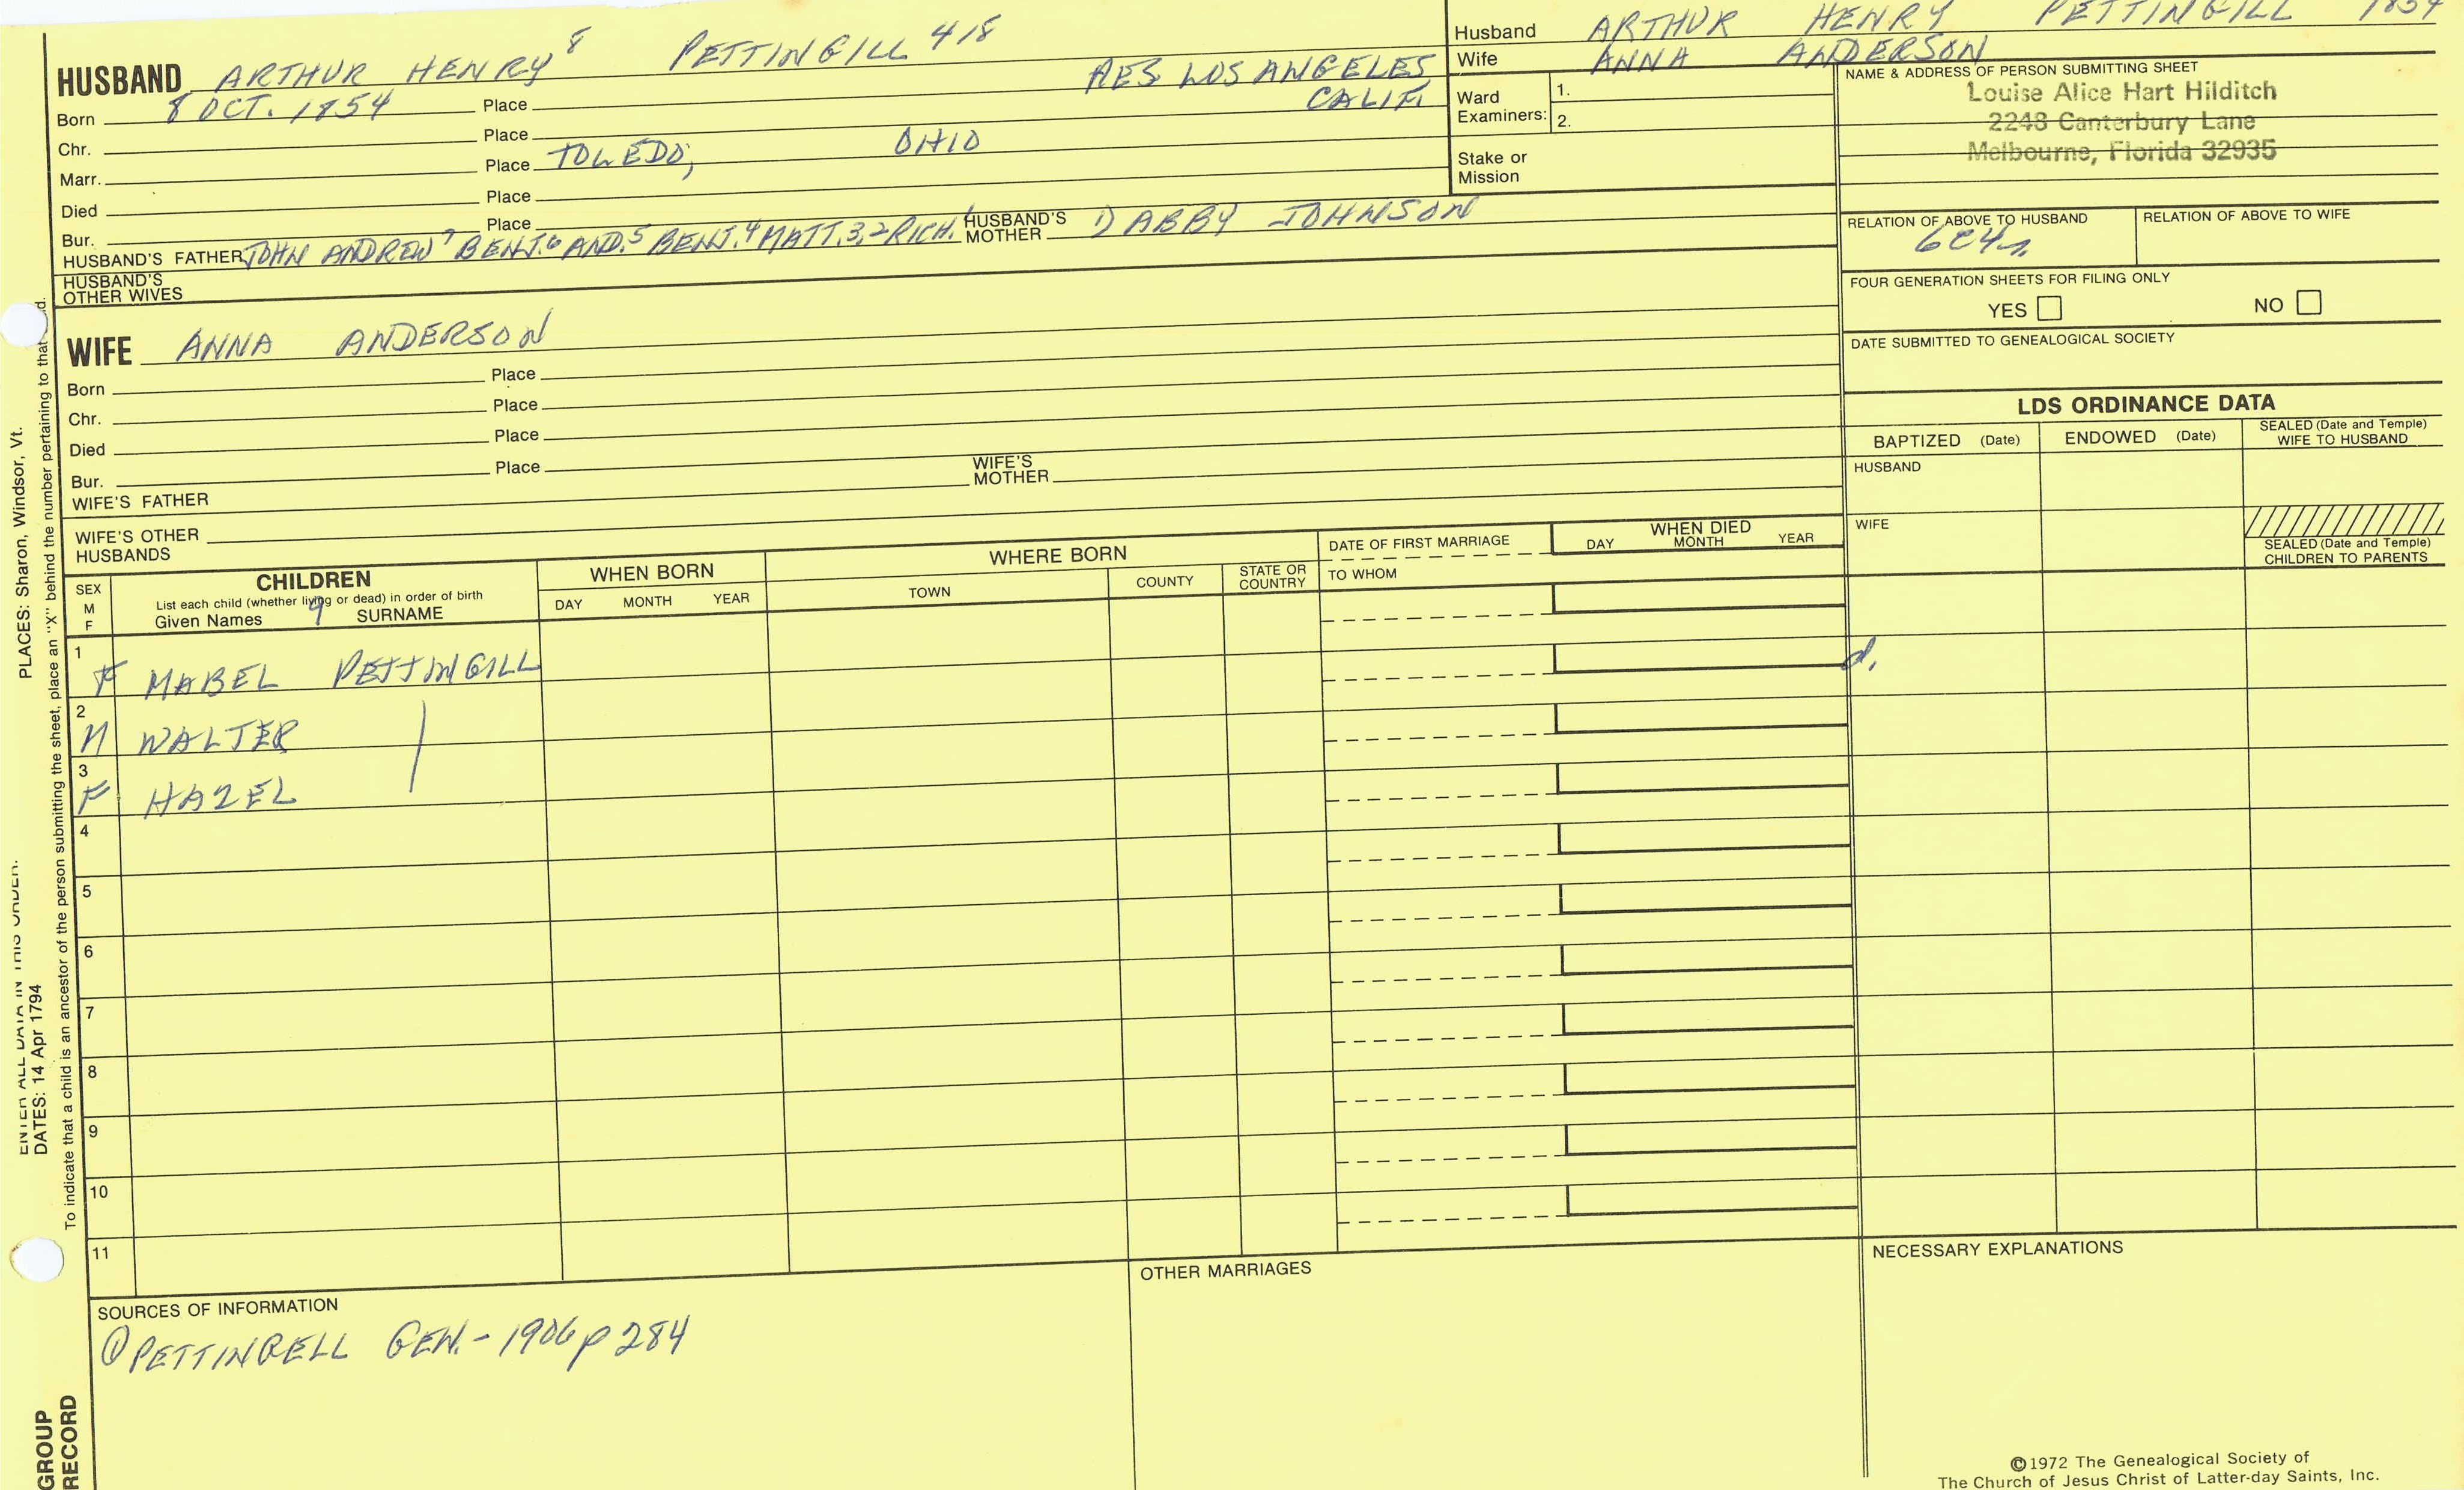 Husband ARTHUR HENRY PETTINGILL 1854
Wife ANNA ANDERSON
HUSBAND ARTHUR HENRY 8 PETTINGILL 418
RES LOS ANGELES
CALIF.
Born 8 OCT. 1854 Place
Chr. Place
Marr. Place TOLEDO, OHIO
Died Place
Bur. Place
HUSBAND'S FATHER JOHN ANDREW 7 BENJ. 6 AND. 5 BENJ. 4 MATT. 3, 2 RICH. 1 HUSBAND'S MOTHER 1) ABBY JOHNSON
HUSBAND'S
OTHER WIVES
Ward
Examiners: 1.
2.
Stake or
Mission
NAME & ADDRESS OF PERSON SUBMITTING SHEET
Louise Alice Hart Hilditch
2248 Canterbury Lane
Melbourne, Florida 32935
RELATION OF ABOVE TO HUSBAND RELATION OF ABOVE TO WIFE
6C4r
FOUR GENERATION SHEETS FOR FILING ONLY
YES NO
DATE SUBMITTED TO GENEALOGICAL SOCIETY
WIFE ANNA ANDERSON
Born Place
Chr. Place
Died Place
Bur. Place
WIFE'S FATHER WIFE'S MOTHER
WIFE'S OTHER
HUSBANDS
LDS ORDINANCE DATA
BAPTIZED (Date) ENDOWED (Date) SEALED (Date and Temple)
WIFE TO HUSBAND
HUSBAND
WIFE
SEALED (Date and Temple)
CHILDREN TO PARENTS
SEX
M
F
CHILDREN
List each child (whether living or dead) in order of birth
Given Names 9 SURNAME
WHEN BORN
DAY MONTH YEAR
WHERE BORN
TOWN COUNTY STATE OR
COUNTRY
DATE OF FIRST MARRIAGE
TO WHOM
WHEN DIED
DAY MONTH YEAR
1
F MABEL PETTINGILL d.
2
M WALTER
3
F HAZEL
4
5
6
7
8
9
10
11
SOURCES OF INFORMATION
① PETTINGELL GEN. - 1906 p 284
OTHER MARRIAGES
NECESSARY EXPLANATIONS
©1972 The Genealogical Society of
The Church of Jesus Christ of Latter-day Saints, Inc.
PLACES: Sharon, Windsor, Vt.
ENTER ALL DATA IN THIS ORDER:
DATES: 14 Apr 1794
To indicate that a child is an ancestor of the person submitting the sheet, place an "X" behind the number pertaining to that
GROUP
RECORD